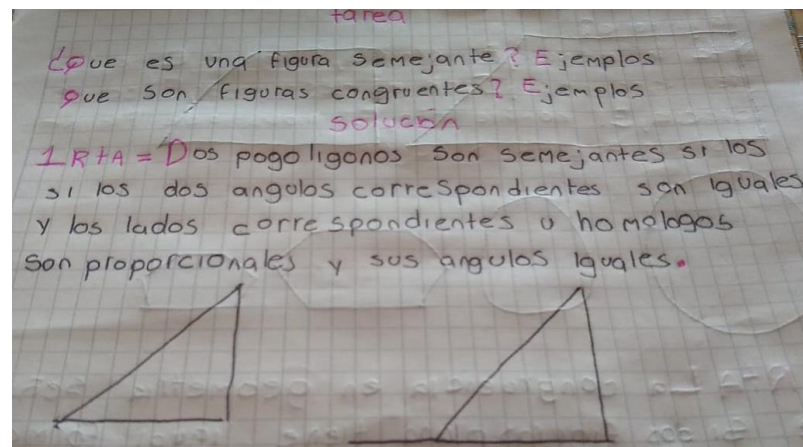 tarea
¿Que es una figura semejante? Ejemplos
que son figuras congruentes? Ejemplos
Solucon
1 R+A = Dos pogoligonos son semejantes si los
si los dos angulos correspondientes son iguales
y los lados correspondientes u homologos
son proporcionales y sus angulos iguales.